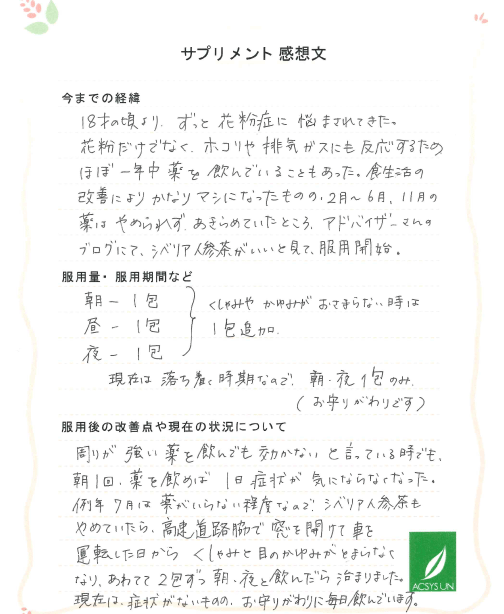 サプリメント 感想文
今までの経緯
18才の頃より、ずっと 花粉症に 悩まされてきた。
花粉だけでなく、ホコリや 排気ガスにも 反応するため
ほぼ一年中 薬を 飲んでいることもあった。食生活の
改善により かなりマシになったものの、2月〜6月、11月の
薬は やめられず、あきらめていたところ、アドバイザーさんの
ブログにて、シベリア人参茶がいいと見て、服用開始。
服用量・服用期間など
朝 ー 1包
昼 ー 1包
夜 ー 1包
くしゃみや かゆみが おさまらない時は
1包追加。
現在は 落ち着く時期なので、朝・夜 1包のみ。
(お守りがわりです)
服用後の改善点や現在の状況について
周りが 強い薬を飲んでも効かない と言っている時でも、
朝1回、薬を飲めば 1日 症状が 気にならなくなった。
例年 7月は 薬がいらない程度なので、シベリア人参茶も
やめていたら、高速道路脇で 窓を開けて 車を
運転した日から くしゃみと目のかゆみがとまらなく
なり、あわてて 2包ずつ 朝・夜と飲んだら 治まりました。
現在は、症状がないものの、お守りがわりに毎日飲んでいます。
ACSYSUN